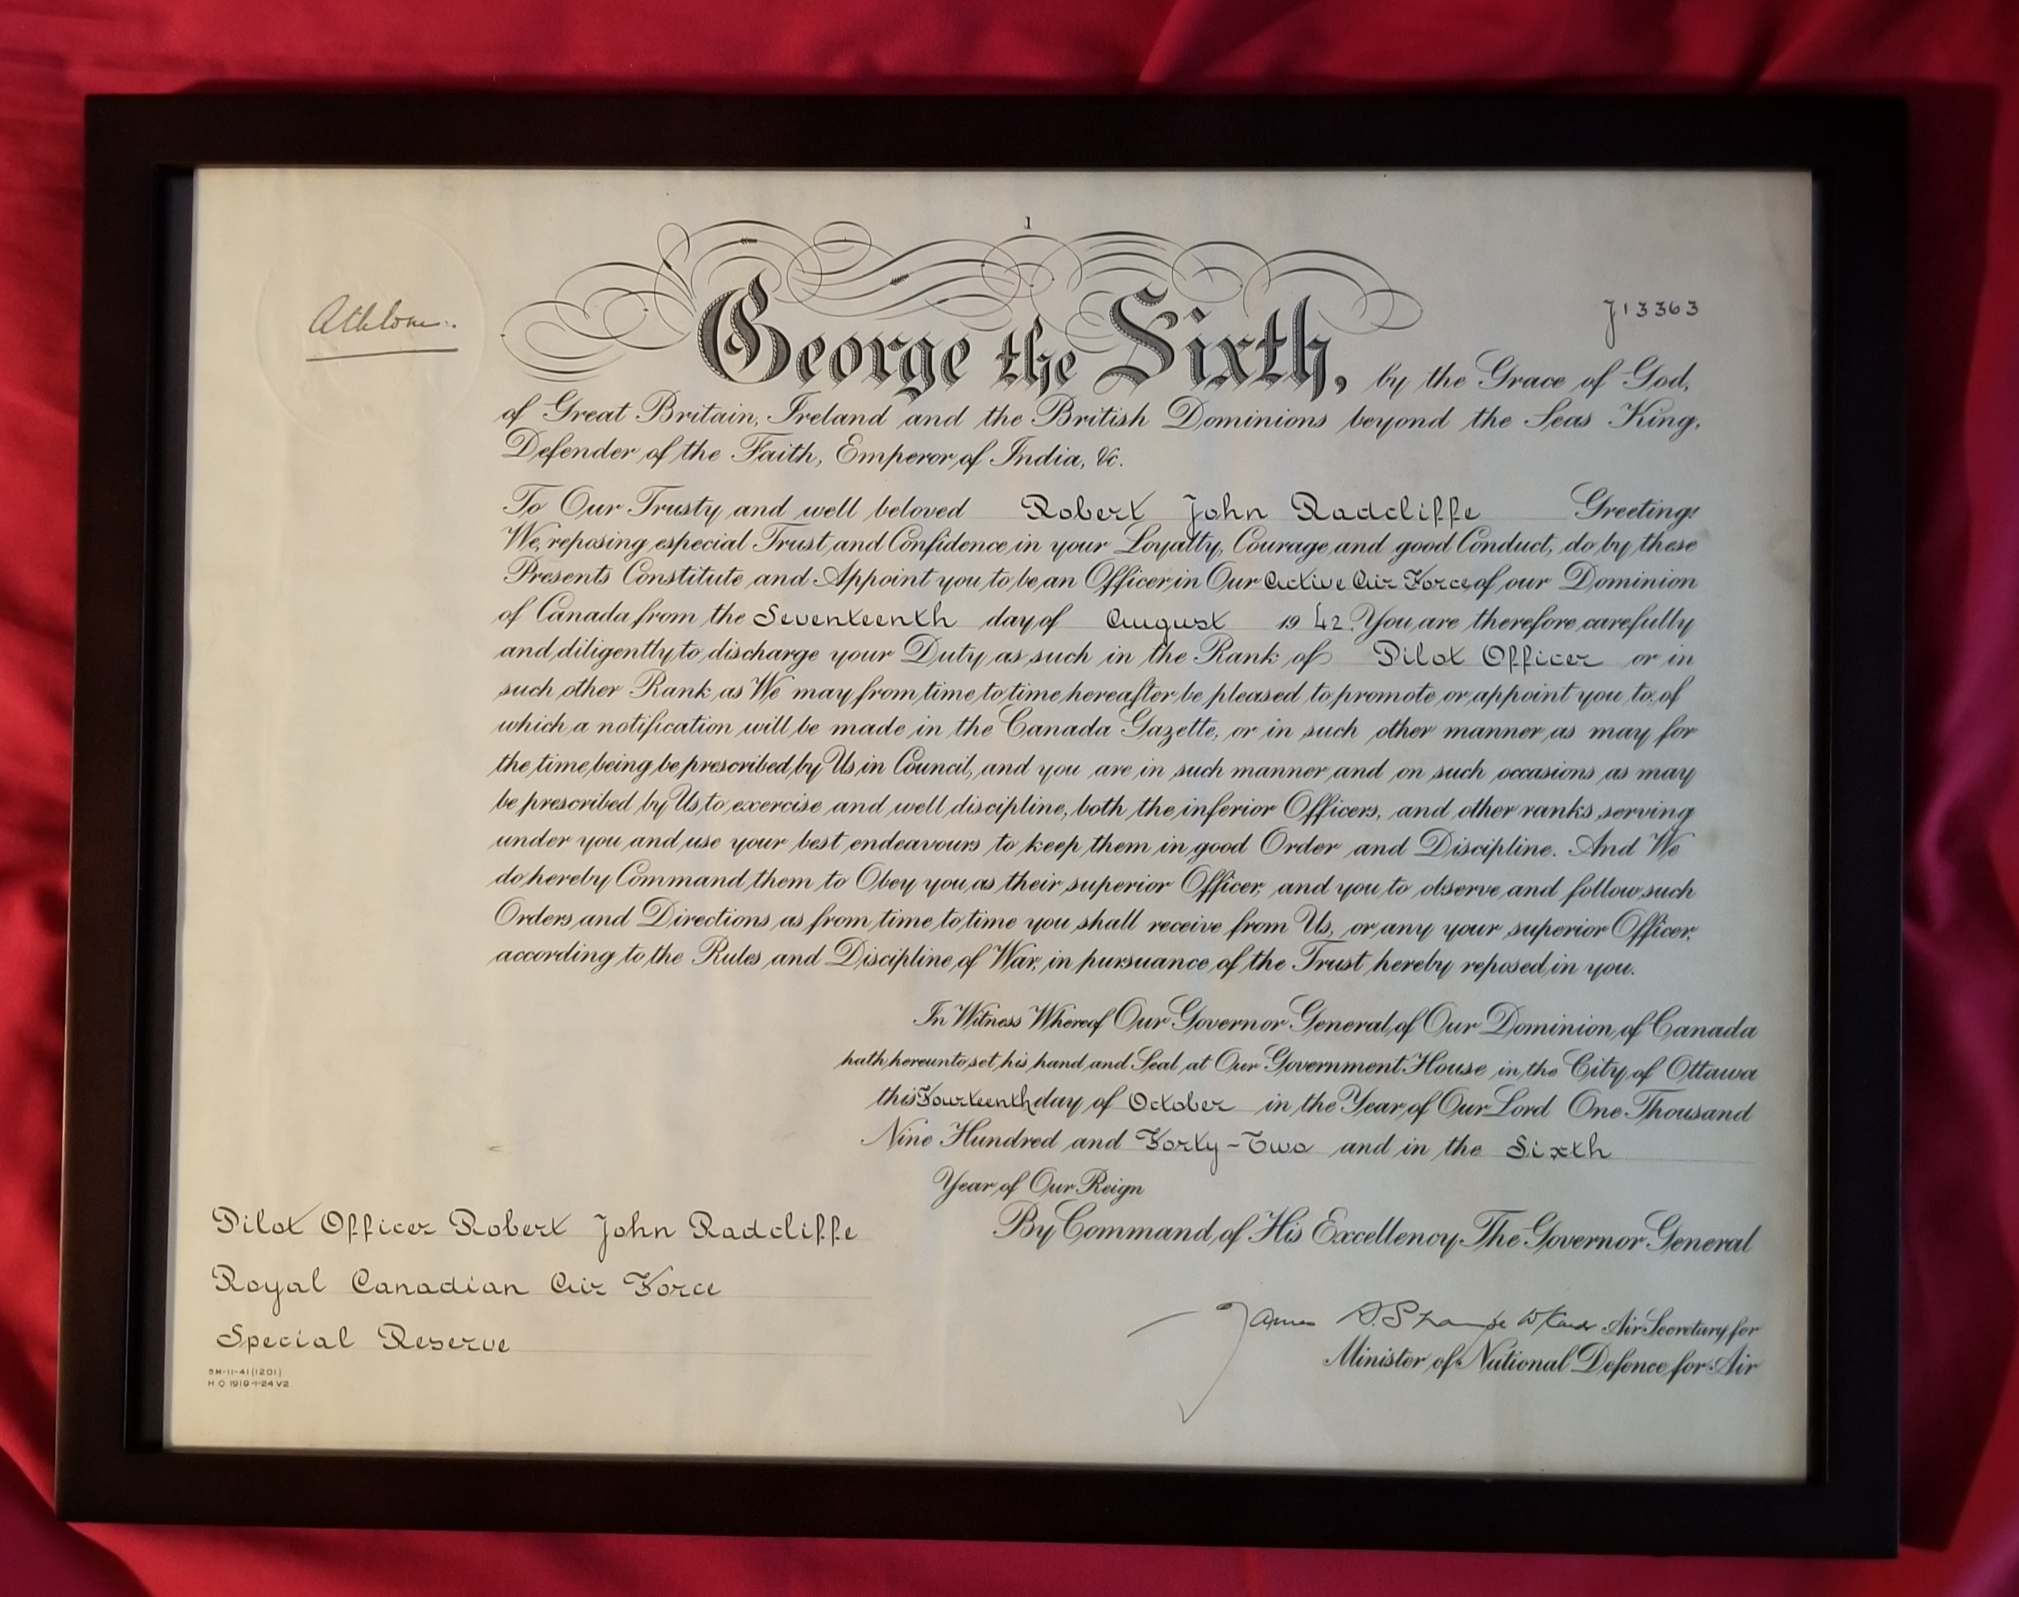 1
Athlone
J13363
George the Sixth, by the Grace of God,
of Great Britain, Ireland and the British Dominions beyond the Seas King,
Defender of the Faith, Emperor of India, &c.
To Our Trusty and well beloved Robert John Radcliffe Greeting:
We, reposing especial Trust and Confidence in your Loyalty, Courage and good Conduct, do by these
Presents Constitute and Appoint you to be an Officer in Our Active Air Force of our Dominion
of Canada from the Seventeenth day of August 1942. You are therefore carefully
and diligently to discharge your Duty as such in the Rank of Pilot Officer or in
such other Rank as We may from time to time hereafter be pleased to promote or appoint you to, of
which a notification will be made in the Canada Gazette, or in such other manner as may for
the time being be prescribed by Us in Council, and you are in such manner and on such occasions as may
be prescribed by Us to exercise and well discipline, both the inferior Officers, and other ranks serving
under you and use your best endeavours to keep them in good Order and Discipline. And We
do hereby Command them to Obey you as their superior Officer, and you to observe and follow such
Orders and Directions as from time to time you shall receive from Us, or any your superior Officer,
according to the Rules and Discipline of War, in pursuance of the Trust hereby reposed in you.
In Witness Whereof Our Governor General of Our Dominion of Canada
hath hereunto set his hand and Seal at Our Government House in the City of Ottawa
this Fourteenth day of October in the Year of Our Lord One Thousand
Nine Hundred and Forty-Two and in the Sixth
Year of Our Reign
By Command of His Excellency The Governor General
Pilot Officer Robert John Radcliffe
Royal Canadian Air Force
Special Reserve
James Air Secretary for
Minister of National Defence for Air
5M-11-41 (1201)
H.Q. 1919-1-24 V2